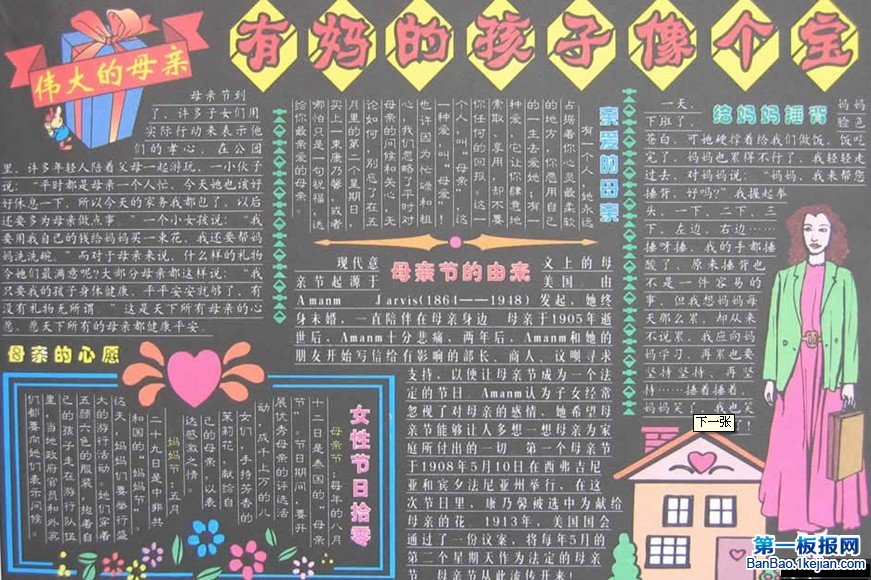 有妈的孩子像个宝
伟大的母亲
母亲节到
了，许多子女们用
实际行动来表示他
们的孝心，在公园
里，许多年轻人陪着父母一起游玩，一小伙子
说：“平时都是母亲一个人忙，今天她也该好
好休息一下，所以今天的家务我都包了，以后
还要多为母亲做点事。”一个小女孩说：“我
要用我自己的钱给妈妈买一束花，我还要帮妈
妈洗洗碗。”而对于母亲来说，什么样的礼物
令她们最满意呢？大部分母亲都这样说：“我
只要我的孩子身体健康，平平安安就够了，有
没有礼物无所谓。”这是天下所有母亲的心
愿，愿天下所有的母亲都健康平安。
母亲的心愿
亲爱的母亲
有一个人，她永远
占据着你心灵最柔软
的地方，你愿用自己
的一生去爱她，有一
种爱，它让你肆意地
索取、享用，却不要
你任何的回报。这一
个人，叫“母亲”，这
一种爱，叫“母爱”！
也许因为忙碌和粗
心，我们忽略了平时对
母亲的问候和关心，无
论如何，别忘了在五
月里的第二个星期日，
买上一束康乃馨，或者
哪怕只是一句祝福，送
给你最亲爱的母亲。
母亲节的由来
现代意 义上的母
亲节起源于 美国 由
Amanm Jarvis(1864——1948) 发起，她终
身未婚，一直陪伴在母亲身边 母亲于1905年逝
世后，Amanm十分悲痛，两年后，Amanm和她的
朋友开始写信给有影响的部长、商人、议呗寻求
支持，以便让母亲节成为一个法
定的节日。Amanm认为子女经常
忽视了对母亲的感情，她希望母
亲节能够让人多想一想母亲为家
庭所付出的一切 第一个母亲节
于1908年5月10日在西弗吉尼
亚和宾夕法尼亚州举行，在这
次节日里，康乃馨被选中为献给
母亲的花。1913年，美国国会
通过了一份议案，将每年5月的
第二个星期天作为法定的母亲
节 母亲节从此流传开来！
给妈妈捶背
一天， 妈妈
下班了， 脸色
苍白，可她硬撑着给我们做饭。饭吃
完了，妈妈也累得不行了，我轻轻走
过去，对妈妈说：“妈妈，我来帮您
捶背，好吗？”我握起拳
头，一下、二下、三
下，左边，右边……
捶呀捶，我的手都捶
酸了，原来捶背也
不是一件容易的
事，但我想妈妈每
天那么累，却从来
不说累，我应向妈
妈学习，再累也要
坚持坚持、再坚
持……捶着捶着，
妈妈笑了，我也笑
了！
女性节日拾零
母亲节：每年的八月
十二日是泰国的“母亲
节”，节日期间，要开
展优秀母亲的评选活
动，成千上万的儿
女们，手持芳香的
茉莉花，献给自
己的母亲，以表
达感激之情。
妈妈节：五月
二十九日是中非共
和国的“妈妈节”。
这天，妈妈们要举行盛
大的游行活动。她们穿着
五颜六色的服装，抱着自
己的孩子走在游行队伍
里，当地政府官员和外宾
们都要向她们表示问候。
下一张
第一板报网
BanBao.1kejian.com